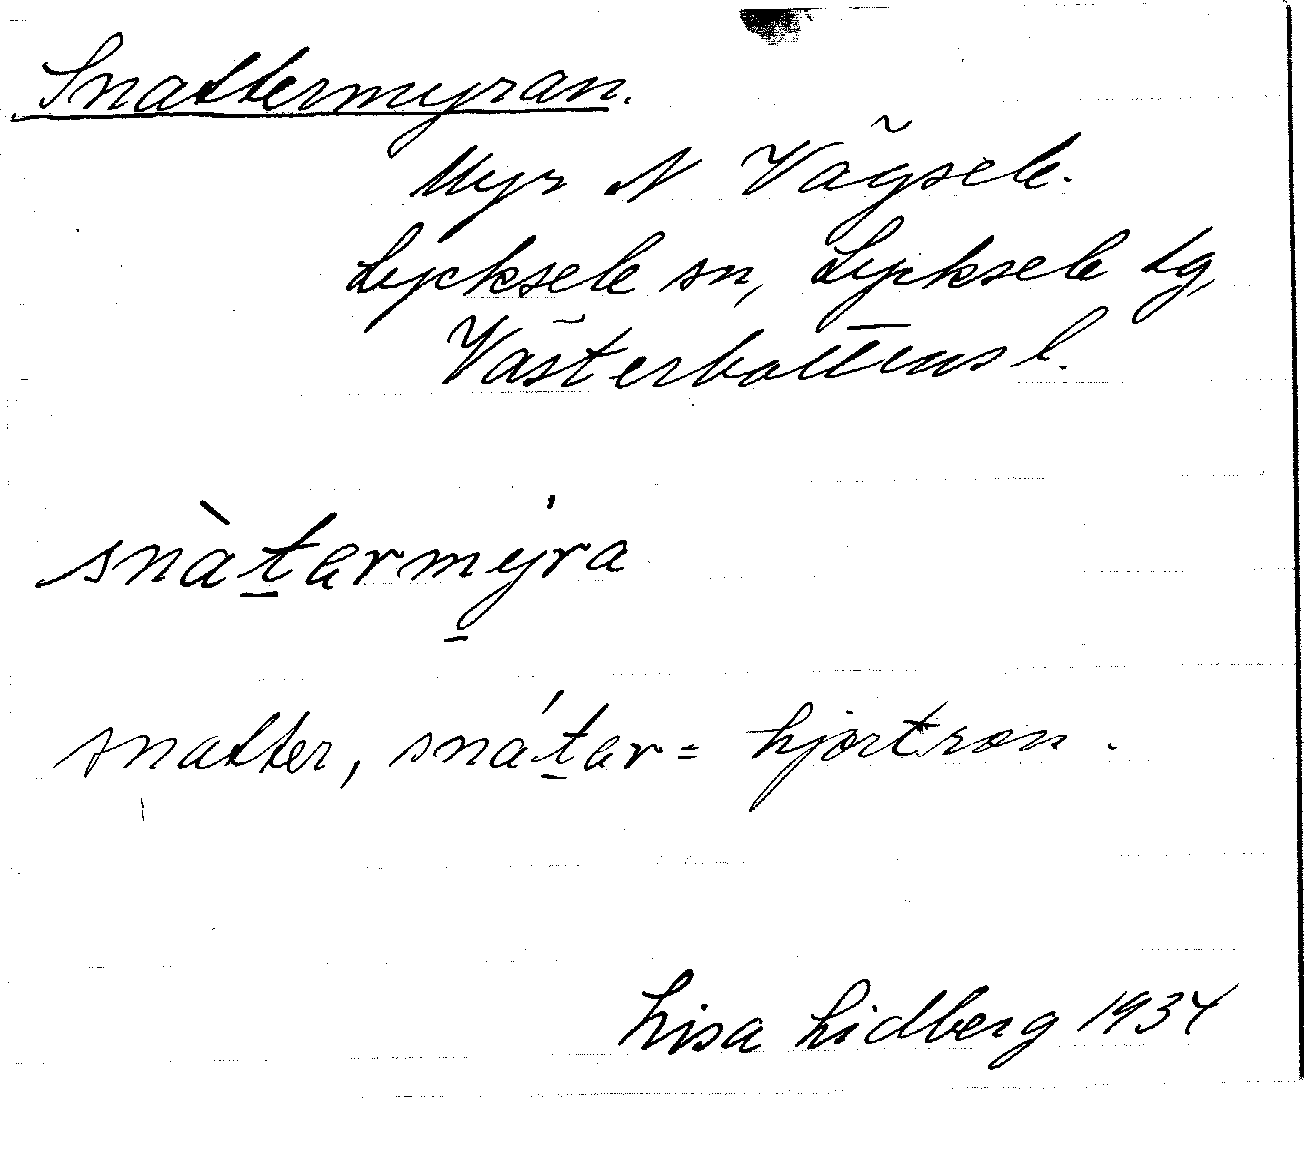 Snattermyran.
Myr N Vägsele.
Lycksele sn, Lycksele lg,
Västerbottens l.
snàt̲army̲ra
snatter, snát̲ar = hjortron.
Lisa Lidberg 1934